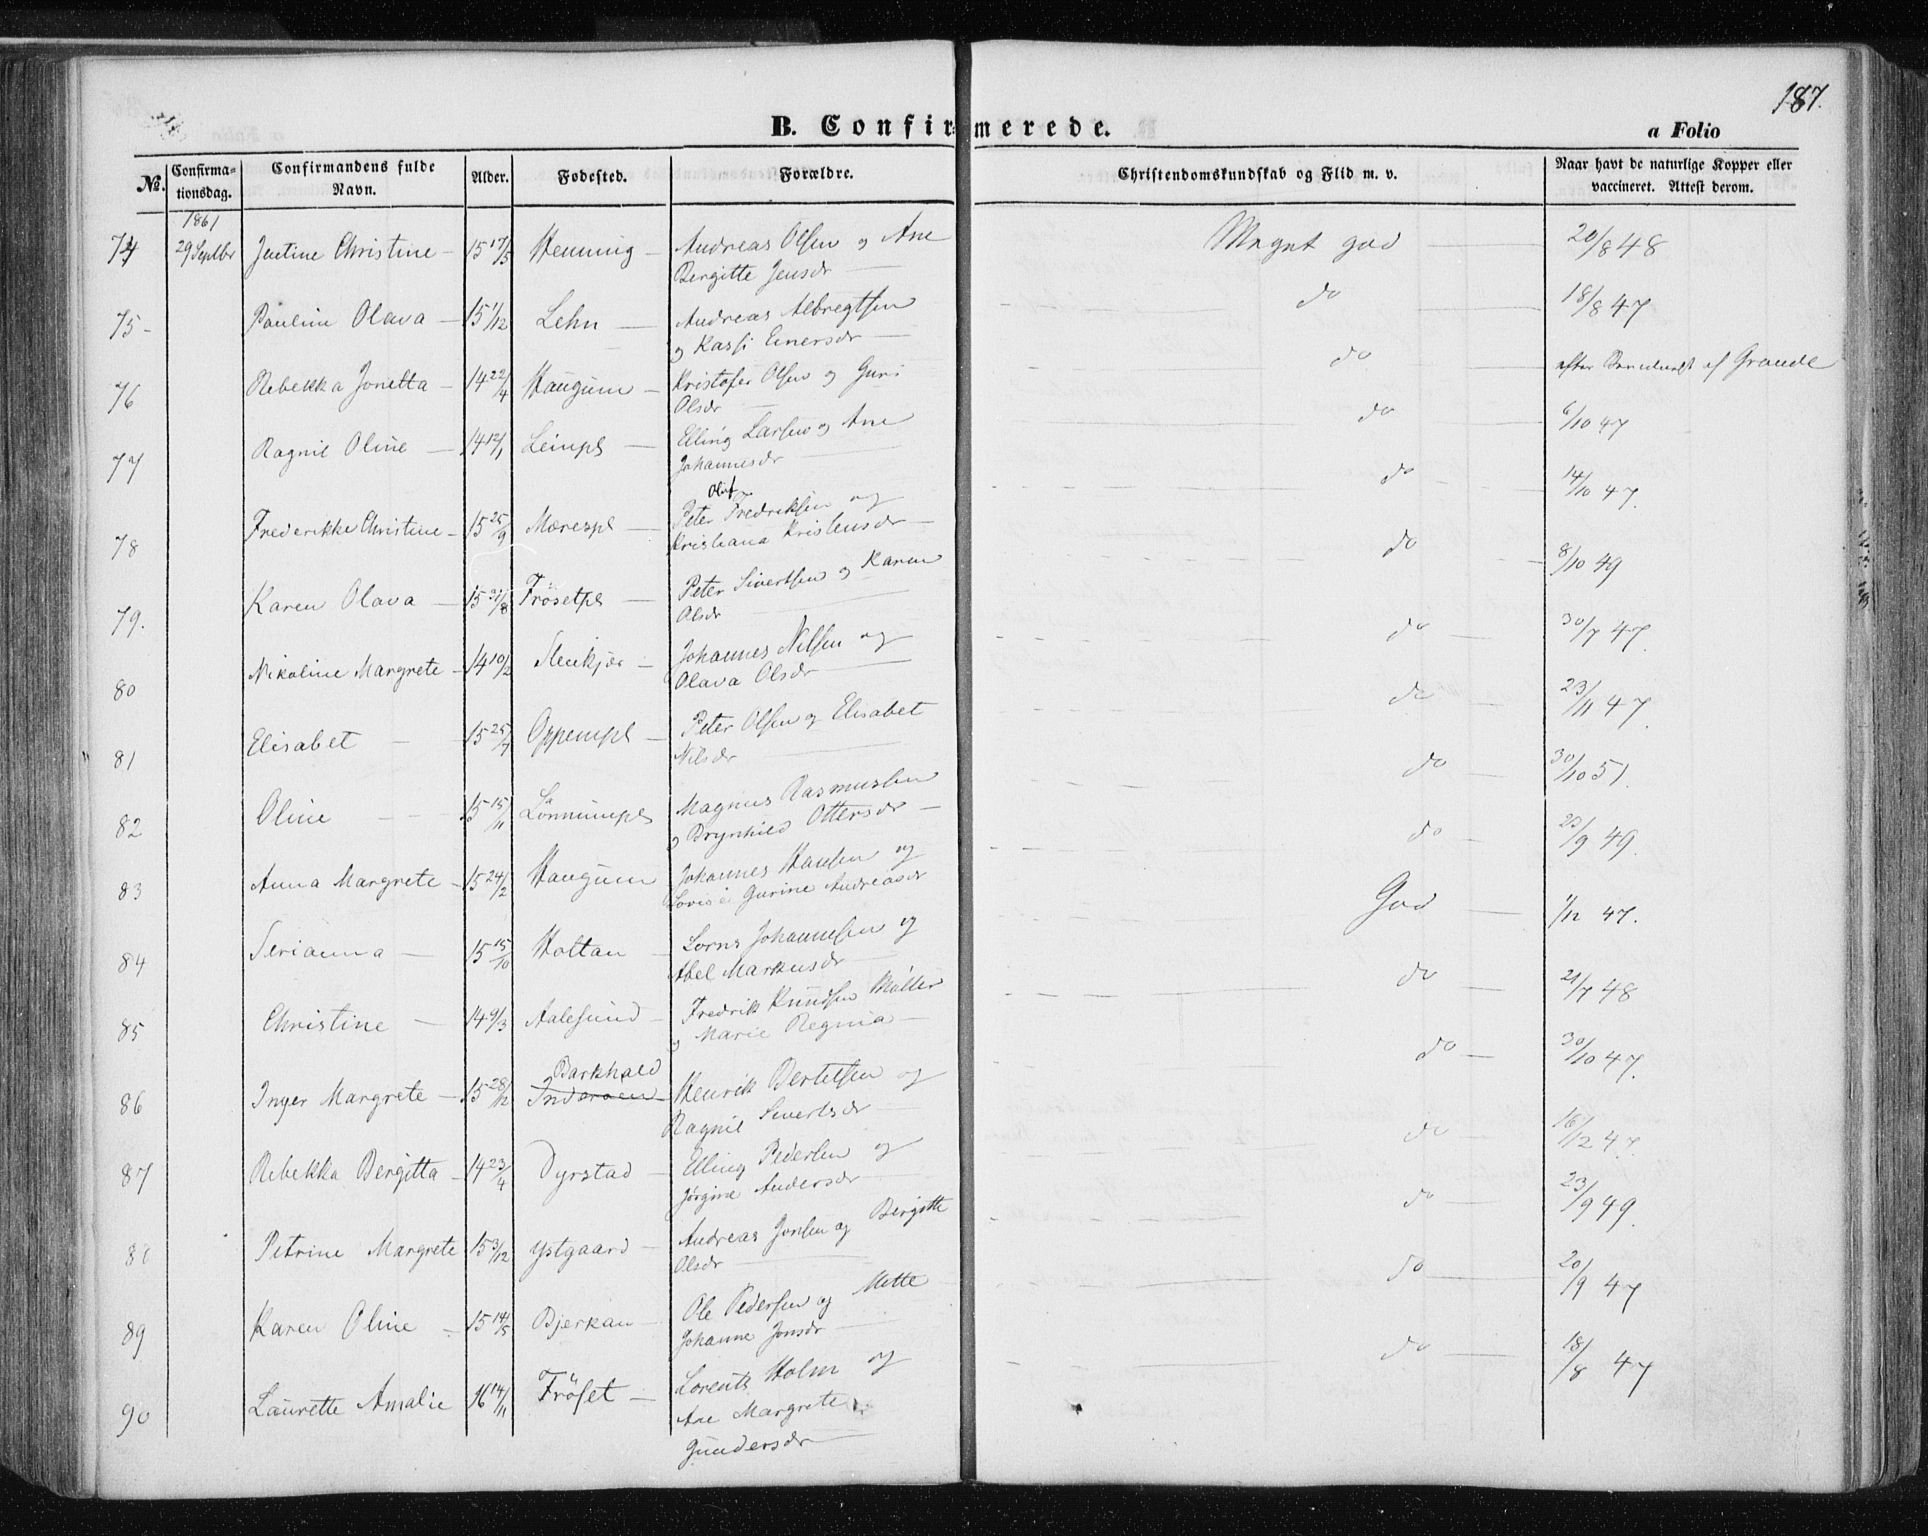 187.
B. Confirmerede.
a Folio
No. Confirmationsdag. Confirmandens fulde Navn. Alder. Fødested. Forældre. Christendomskundskab og Flid m. v. Naar havt de naturlige Kopper eller vaccineret. Attest derom.
1861
74 29 Septbr Justine Christine - 15 17/5 Henning - Andreas Olsen og Ane Meget god 20/8 48
Bergitte Jensdr
75 - Pauline Olava - 15 1/12 Lehn - Andreas Albregtsen do 18/8 47
og Kassi Einersdr
76 Rebekka Jonetta - 14 22/4 Haugum - Kristofer Olsen og Guri do efter af Grande
Olsdr
77 Ragnil Oline - 14 12/1 Leinpl - Elling Larsen og Ane do 6/10 47
Johannesdr
Oluf
78 Frederikke Christine - 15 25/9 Mærespl - Peter Fredriksen og do 14/10 47.
Kristiana Kristensdr -
79. Karen Olava - 15 31/8 Frösetpl - Peter Sivertsen og Karen do 8/10 49
Olsdr
80 Nikoline Margrete - 14 10/2 Stenkjær - Johannes Nilsen og do 30/7 47.
Olava Olsdr
81 Elisabet - 15 25/7 Oppempl - Peter Olsen og Elisabet do 23/11 47.
Nilsdr
82 Oline - - 15 15/11 Lönnumpl Magnus Rasmussen do 30/10 51.
og Brynhild Ottersdr -
83 Anna Margrete - 15 24/2 Haugum Johannes Hansen og do 23/9 49.
Lovise Gurine Andreasdr
84 Serianna - 15 15/10 Holtan - Lorns Johannesen og God 1/12 47.
Abel Markusdr
85 Christine - 14 9/3 Aalesund - Fredrik Knudsen Möller do 21/7 48
og Marie Regina -
Barkhald
86 Inger Margrete - 15 28/12 Inderöen - Henrik Bertelsen og do 30/10 47.
Ragnil Sivertsdr
87 Rebekka Bergitta - 14 23/4 Dyrstad - Elling Pedersen og do 16/12 47.
Jørgine Andersdr
88 Petrine Margrete 15 3/12 Ystgaard - Andreas Jonsen og Bergitte do 23/9 49.
Olsdr
89 Karen Oline - 15 14/5 Bjerkan - Ole Pedersen og Mette do 20/9 47
Johanne Jonsdr
90 Laurette Amalie 16 14/11 Fröset - Lorents Holm og do 18/8 47
Ane Margrete
Gundersdr